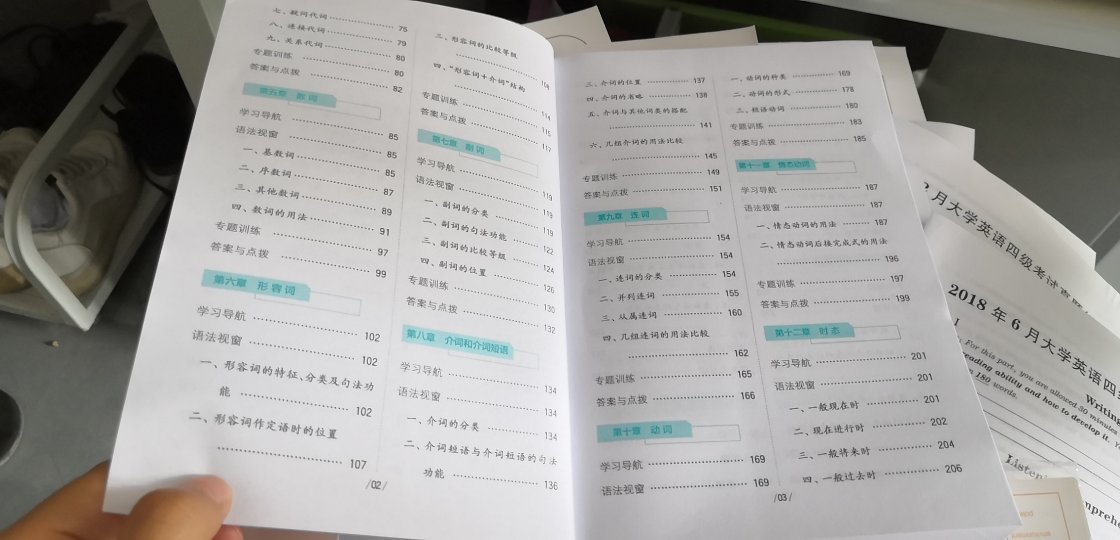 七、疑问代词 75
八、连接代词 79
九、关系代词 80
专题训练 80
答案与点拨 82
第五章 数词
学习导航 85
语法视窗 85
一、基数词 85
二、序数词 87
三、其他数词 89
四、数词的用法 91
专题训练 97
答案与点拨 99
第六章 形容词
学习导航 102
语法视窗 102
一、形容词的特征、分类及句法功
能 102
二、形容词作定语时的位置
107
三、形容词的比较等级
四、“形容词+介词”结构
专题训练
答案与点拨 117
第七章 副词
学习导航 119
语法视窗 119
一、副词的分类 119
二、副词的句法功能 122
三、副词的比较等级 124
四、副词的位置 126
专题训练 130
答案与点拨 132
第八章 介词和介词短语
学习导航 134
语法视窗 134
一、介词的分类 134
二、介词短语与介词短语的句法
功能 136
/02/
三、介词的位置 137
四、介词的省略 138
五、介词与其他词类的搭配
141
六、几组介词的用法比较
145
专题训练 149
答案与点拨 151
第九章 连词
学习导航 154
语法视窗 154
一、连词的分类 154
二、并列连词 155
三、从属连词 160
四、几组连词的用法比较
162
专题训练 165
答案与点拨 166
第十章 动词
学习导航 169
语法视窗 169
一、动词的种类 169
二、动词的形式 178
三、短语动词 180
专题训练 183
答案与点拨 185
第十一章 情态动词
学习导航 187
语法视窗 187
一、情态动词的用法 187
二、情态动词后接完成式的用法
196
专题训练 197
答案与点拨 199
第十二章 时态
学习导航 201
语法视窗 201
一、一般现在时 201
二、现在进行时 202
三、一般将来时 204
四、一般过去时 206
/03/
2月大学英语四级考试
2018年6月大学英语四
Writing
For this part, you are allowed 30 minutes
reading ability and how to develop it.
180 words.
Listen